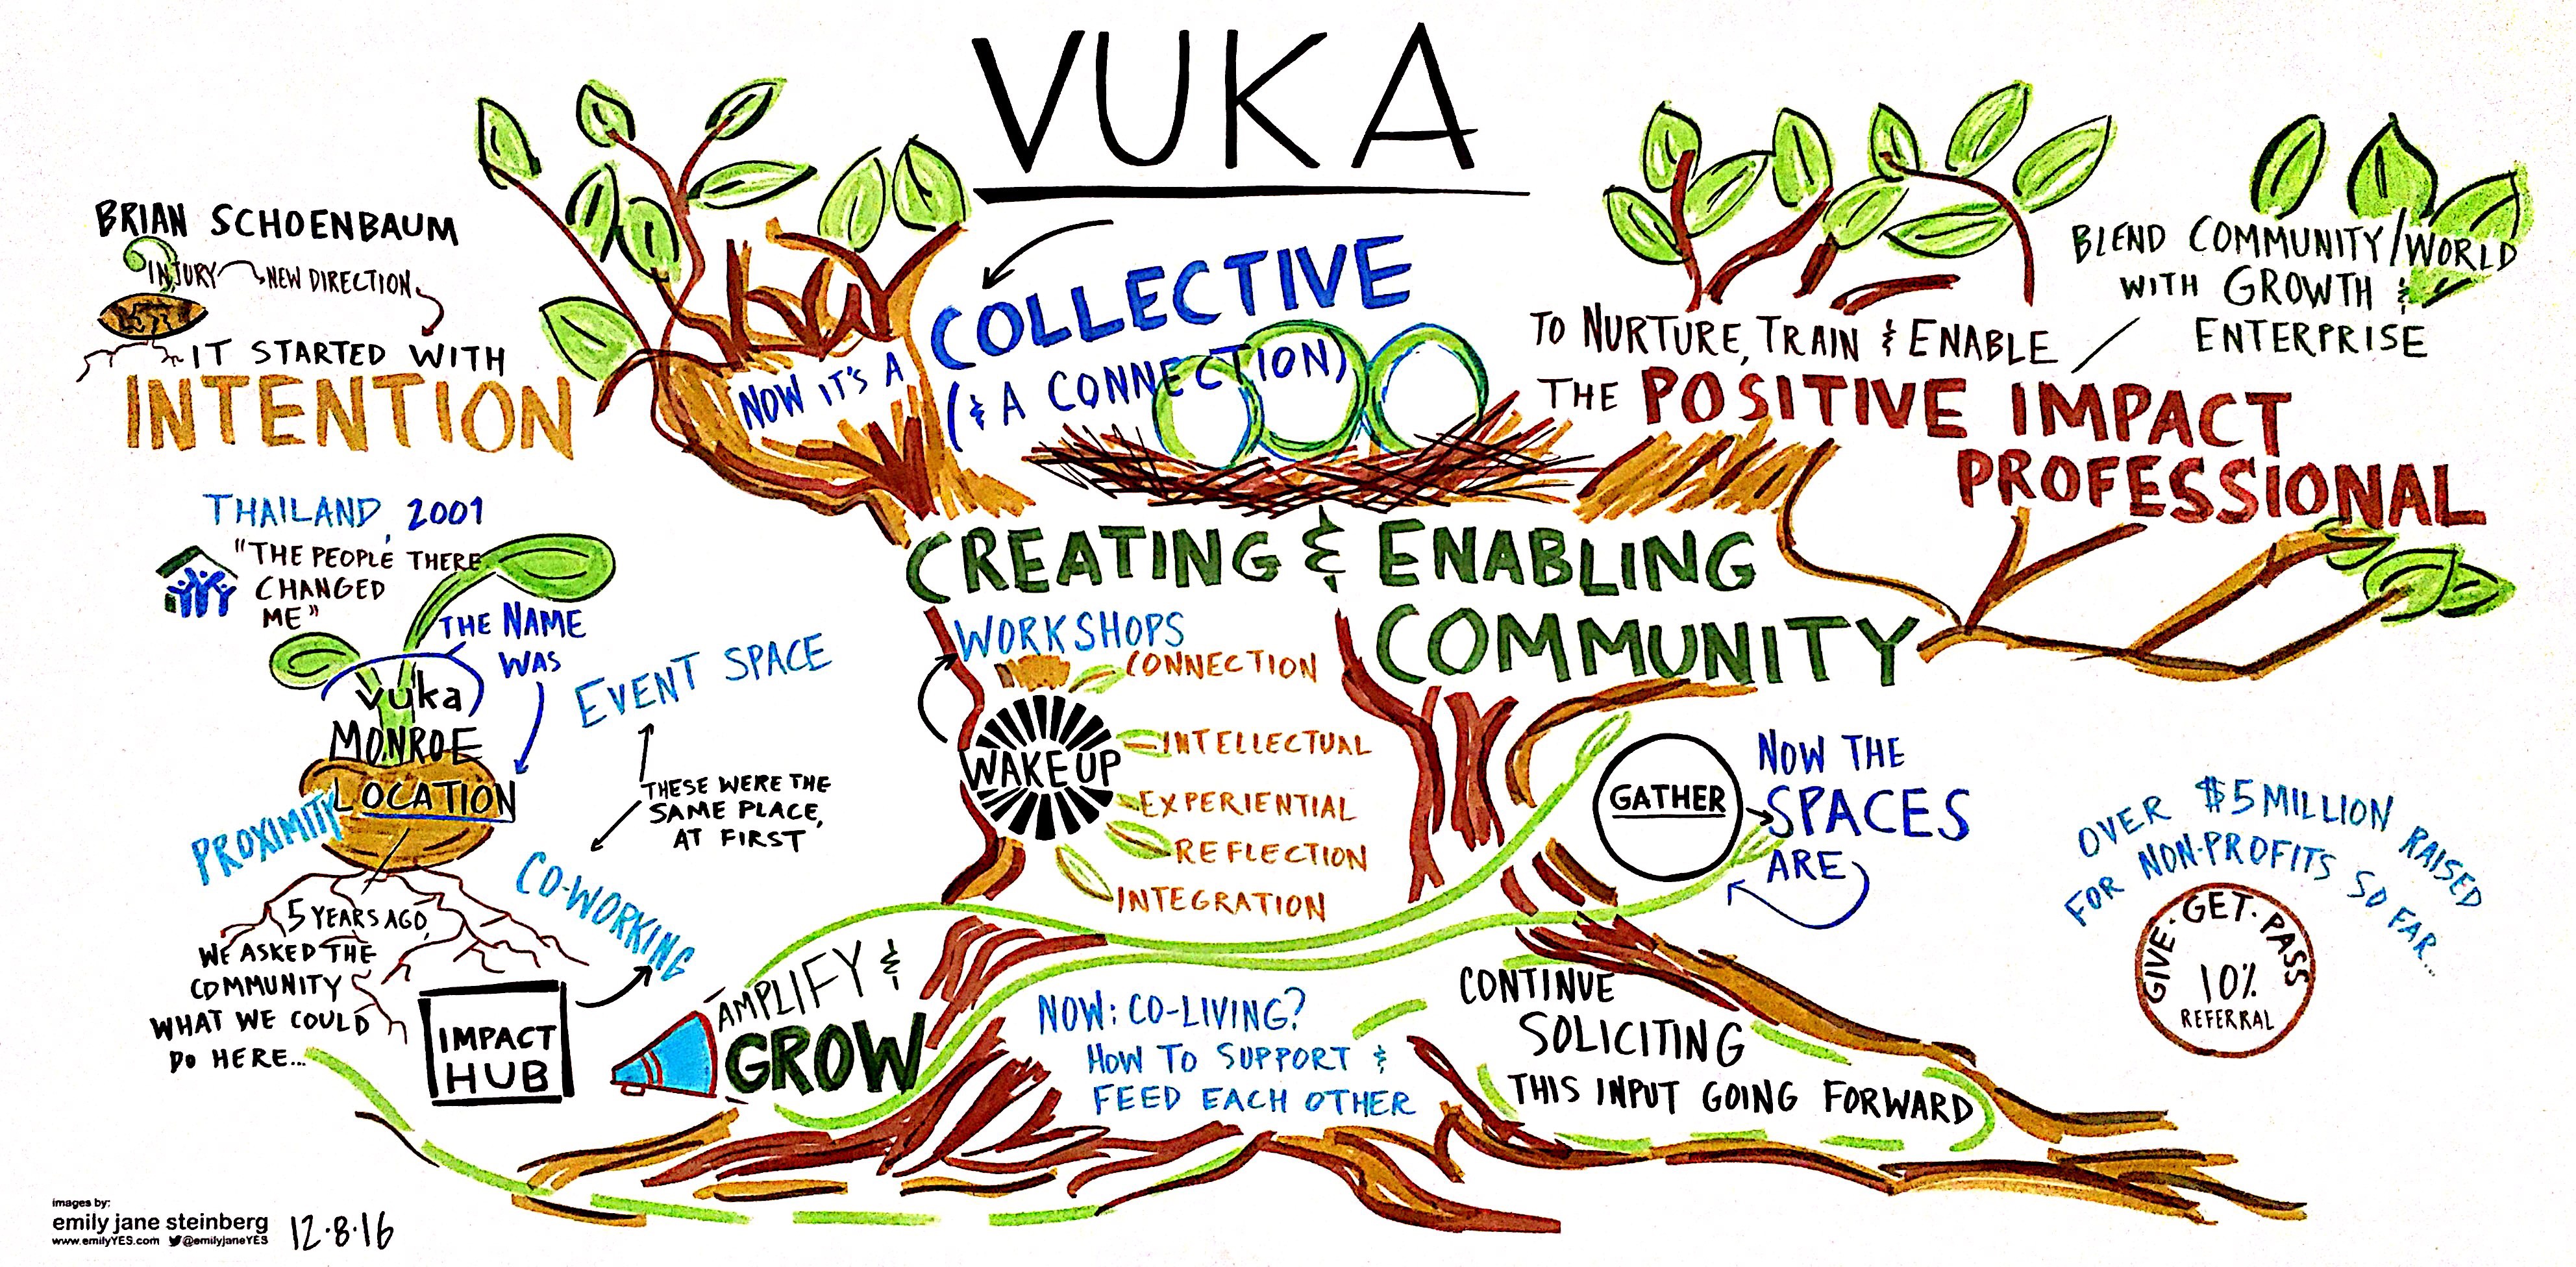 VUKA
BRIAN SCHOENBAUM
INJURY
NEW DIRECTION
IT STARTED WITH
INTENTION
THAILAND, 2001
"THE PEOPLE THERE
CHANGED
ME"
THE NAME
WAS
vuka
MONROE
LOCATION
PROXIMITY
5 YEARS AGO,
WE ASKED THE
COMMUNITY
WHAT WE COULD
DO HERE...
EVENT SPACE
THESE WERE THE
SAME PLACE,
AT FIRST
CO-WORKING
IMPACT
HUB
AMPLIFY &
GROW
NOW IT'S A
COLLECTIVE
(& A CONNECTION)
CREATING & ENABLING
COMMUNITY
WORKSHOPS
WAKE UP
CONNECTION
INTELLECTUAL
EXPERIENTIAL
REFLECTION
INTEGRATION
NOW: CO-LIVING?
HOW TO SUPPORT &
FEED EACH OTHER
TO NURTURE, TRAIN & ENABLE
THE POSITIVE IMPACT
PROFESSIONAL
BLEND COMMUNITY/WORLD
WITH GROWTH &
ENTERPRISE
GATHER
NOW THE
SPACES
ARE
CONTINUE
SOLICITING
THIS INPUT GOING FORWARD
OVER $5 MILLION RAISED
FOR NON-PROFITS SO FAR...
GIVE · GET · PASS
10%
REFERRAL
images by:
emily jane steinberg
www.emilyYES.com @emilyjaneYES
12·8·16